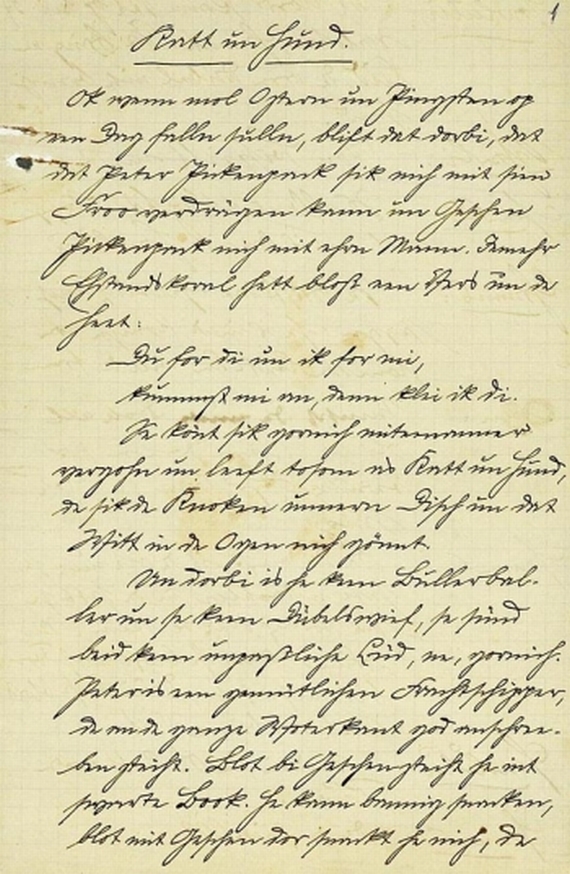 1
Katt un Hund.
Ok wenn mol Ostern un Pingsten op
een Dag falln sulln, blift dat dorbi, dat
dat Peter Pickenpack sik nich mit sien
Froo verdrügen kann un Geschen
Pickenpack nich mit ehrn Mann. Jemehr
Ehstandskoral hett blost een Vers un de
heet:
Du for di un ik for mi,
kummst mi an, denn klei ik di.
Se könt sik gornich miteenanner
vergohn un leeft tosom as Katt un Hund,
de sik de Knoken unnern Disch un dat
Witt in de Ogen nich gönnt.
Un dorbi is he keen Bullerbal-
ler un se keen Dübelswief, se sünd
beid keen unpaßliche Lüd, ne, gornich.
Peter is een gemütlichen Frachtschipper,
de an de ganze Woterkant god anschree-
ben steiht. Blot bi Geschen steiht he int
swarte Book. He kann bannig snacken,
blot mit Geschen dor snackt he nich, de